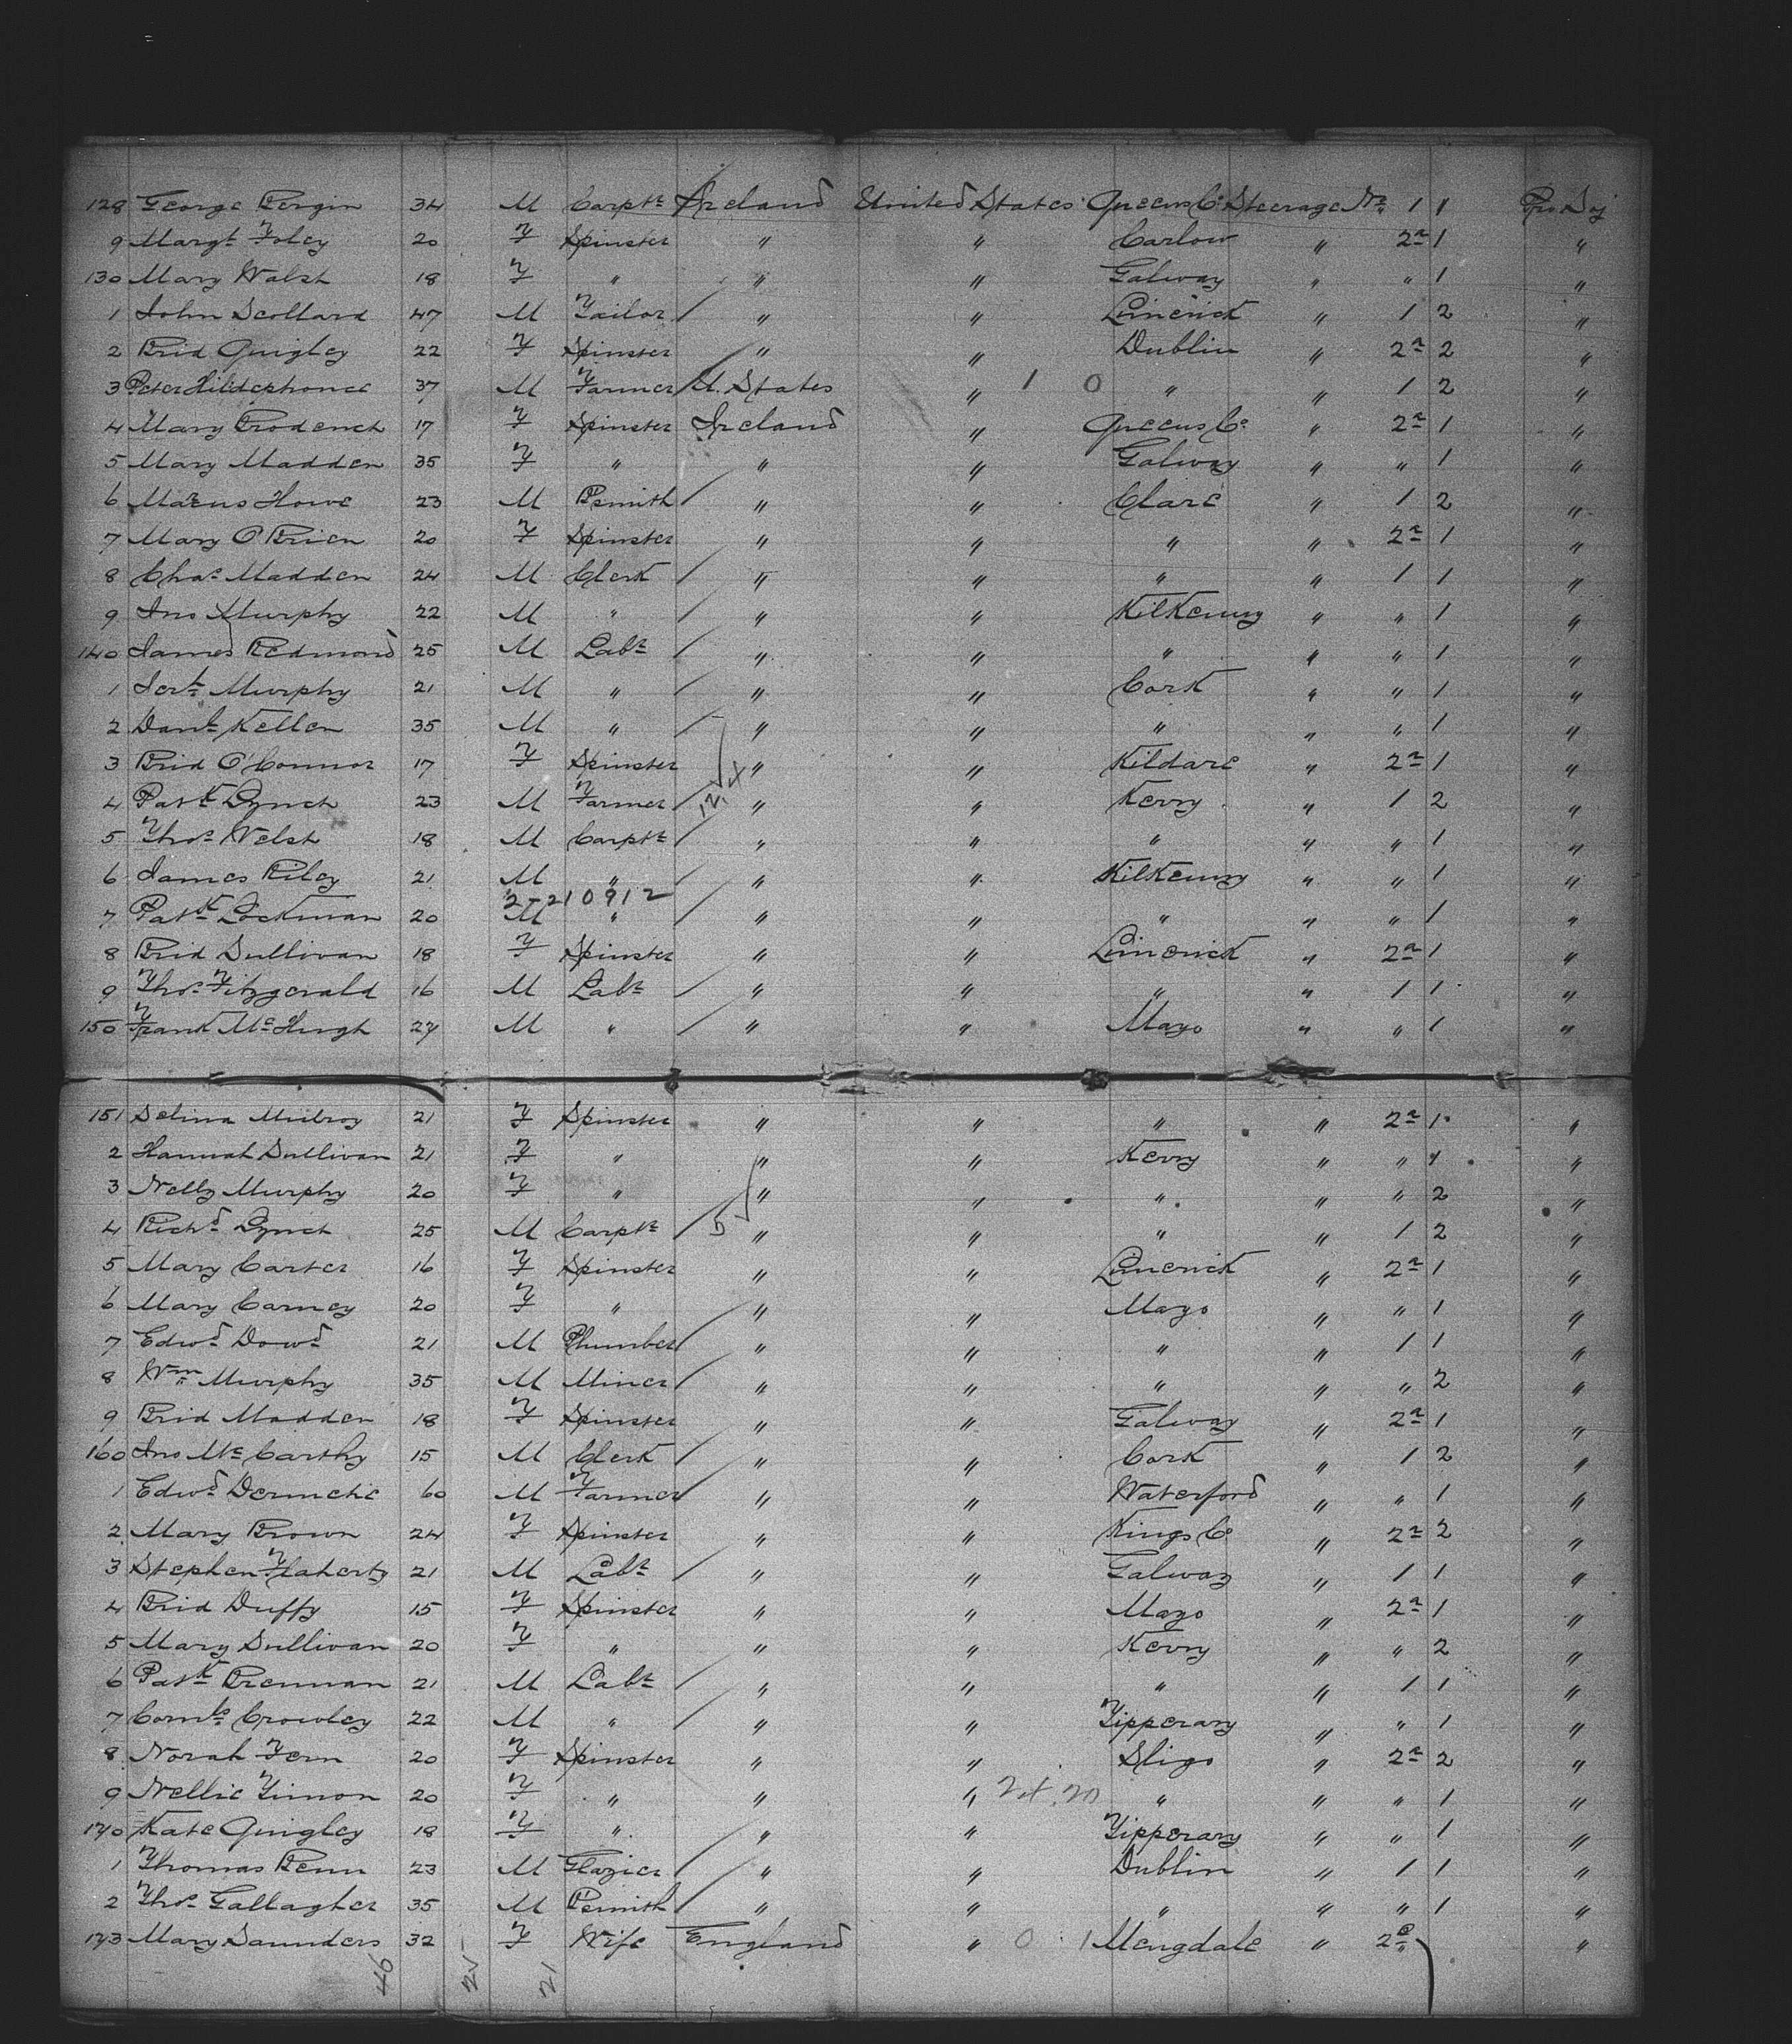 128 George Bergin 34 M Carptr Ireland United States Queens Co Steerage No 1 1 Pro Soj
9 Margt Foley 20 F Spinster " " Carlow " 2a 1 "
130 Mary Walsh 18 F " " " Galway " " 1 "
1 John Scollard 47 M Tailor / " " Limerick " 1 2 "
2 Brid Quigley 22 F Spinster " " Dublin " 2a 2 "
3 Peter Hildephonce 37 M Farmer / U. States " 1 0 " " 1 2 "
4 Mary Broderick 17 F Spinster Ireland " Queens Co " 2a 1 "
5 Mary Madden 35 F " " " Galway " " 1 "
6 Marcus Howe 23 M B'smith / " " Clare " 1 2 "
7 Mary O'Brien 20 F Spinster " " " " 2a 1 "
8 Chas Madden 24 M Clerk / " " " " 1 1 "
9 Jno Murphy 22 M " / " " Kilkenny " " 1 "
140 James Redmond 25 M Labr / " " " " " 1 "
1 Jerh Murphy 21 M " / " " Cork " " 1 "
2 Danl Kellen 35 M " " " " " " 1 "
3 Brid O'Connor 17 F Spinster " " Kildare " 2a 1 "
4 Patk Lynch 23 M Farmer / " " Kerry " 1 2 "
5 Thos Welsh 18 M Carptr " " " " " 1 "
6 James Riley 21 M " / " " Kilkenny " " 1 "
2-210912
7 Patk Lockman 20 M " / " " " " " 1 "
8 Brid Sullivan 18 F Spinster " " Limerick " 2a 1 "
9 Thos Fitzgerald 16 M Labr / " " " " 1 1 "
150 Frank McHugh 27 M " / " " Mayo " " 1 "
151 Selina Mulroy 21 F Spinster " " " " 2a 1 "
2 Hannah Sullivan 21 F " " " Kerry " " "
3 Nelly Murphy 20 F " " " " " " 2 "
4 Richd Lynch 25 M Carptr / " " " " 1 2 "
5 Mary Carter 16 F Spinster " " Limerick " 2a 1 "
6 Mary Carney 20 F " " " Mayo " " 1 "
7 Edwd Dowd 21 M Plumber / " " " " 1 1 "
8 Wm Murphy 35 M Miner / " " " " " 2 "
9 Brid Madden 18 F Spinster " " Galway " 2a 1 "
160 Jno McCarthy 15 M Clerk / " " Cork " 1 2 "
1 Edwd 60 M Farmer / " " Waterford " " 1 "
2 Mary Brown 24 F Spinster " " Kings Co " 2a 2 "
3 Stephen Flaherty 21 M Labr / " " Galway " 1 1 "
4 Brid Duffy 15 F Spinster " " Mayo " 2a 1 "
5 Mary Sullivan 20 F " " " Kerry " " 2 "
6 Patk Brennan 21 M Labr / " " " " 1 1 "
7 Corns Crowley 22 M " / " " Tipperary " " 1 "
8 Norah Fern 20 F Spinster " " Sligo " 2a 2 "
9 Nellie Timon 20 F " " " " " " 1 "
170 Kate Quigley 18 F " " " Tipperary " " 1 "
1 Thomas Benn 23 M Glazier / " " Dublin " 1 1 "
2 Thos Gallagher 35 M B'smith / " " " " " 1 "
173 Mary Saunders 32 F Wife England " 0 1 Mengdale " 2 "
46 25 21